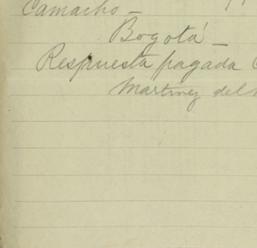 Camacho —
Bogotá —
Respuesta pagada
Martinez del